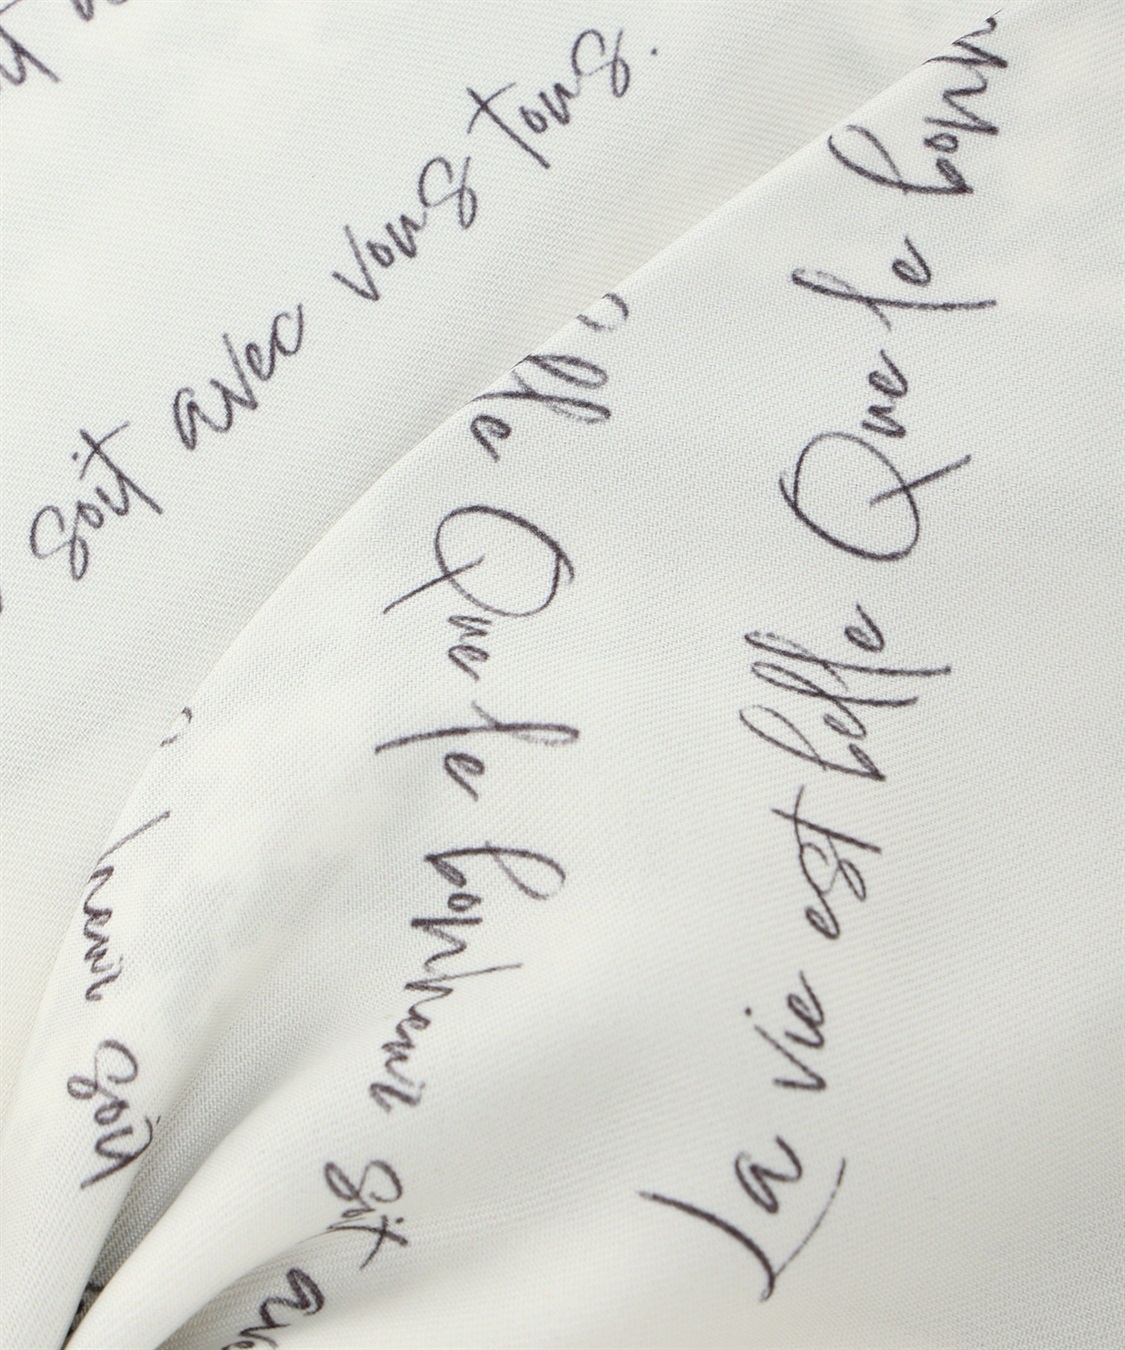 soit avec vous tous.
La vie est belle Que le bonh
elle Que le bonheur soit ave
heur soit